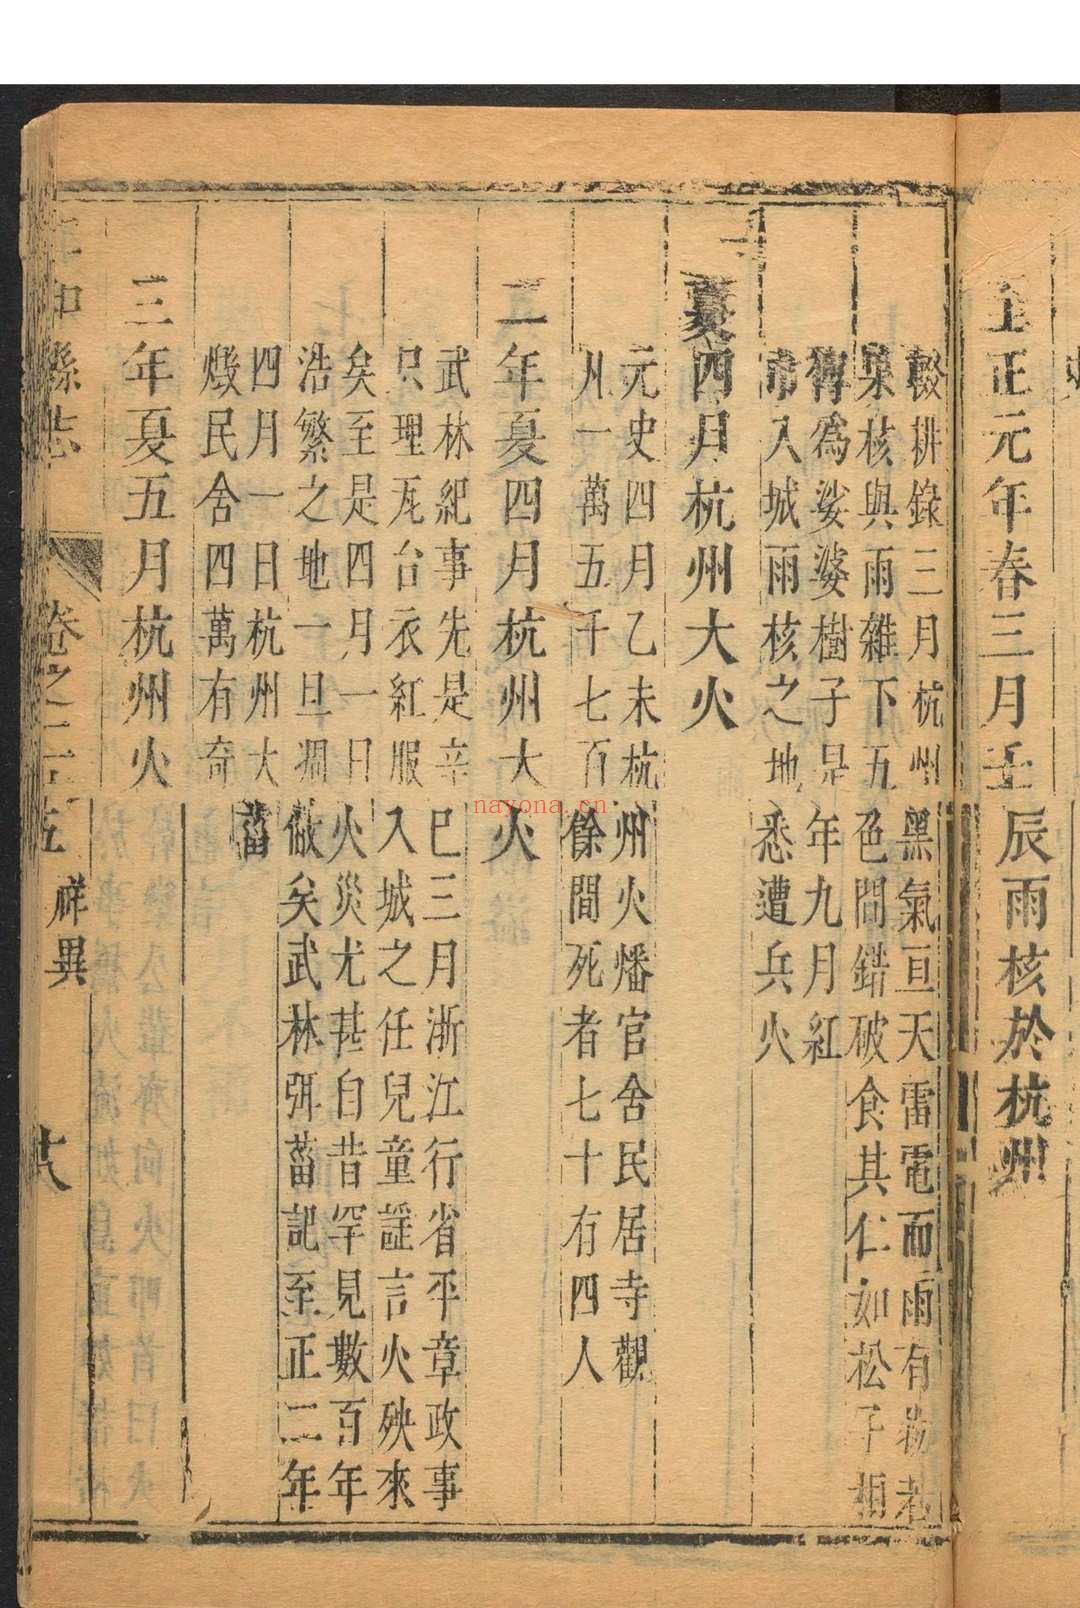 至正元年春三月壬辰雨核於杭州
輟耕錄三月杭州黑氣亘天雷電而雨有物若
果核與雨雜下五色間錯破食其仁如松子相
傳為娑婆樹子是年九月紅
巾入城雨核之地悉遭兵火
夏四月杭州大火
元史四月乙未杭州火燔官舍民居寺觀
凡一萬五千七百餘間死者七十有四人
二年夏四月杭州大火
武林紀事先是辛巳三月浙江行省平章政事
只理瓦台衣紅服入城之任兒童謡言火殃來
矣至是四月一日火災尤甚自昔罕見數百年
浩繁之地一旦凋傚矣武林弭菑記至正二年
四月一日杭州大菑
燬民舍四萬有奇
三年夏五月杭州火
仁和縣志 卷之二十五 祥異 十八
nayona.cn